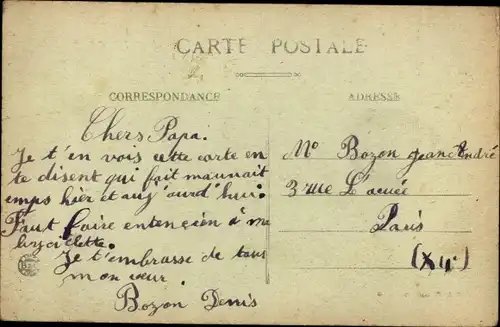 CARTE POSTALE
CORRESPONDANCE
ADRESSE
Chers Papa.
Je t'en vois cette carte en
te disent qui fait mauvait
emps hier et auj'ourd'hui.
Faut faire entencien à ma
biscielette.
Je t'embrasse de tous
mon cœur.
Bozon Denis
Mo Bozon Jean André
3 rue L'
Paris